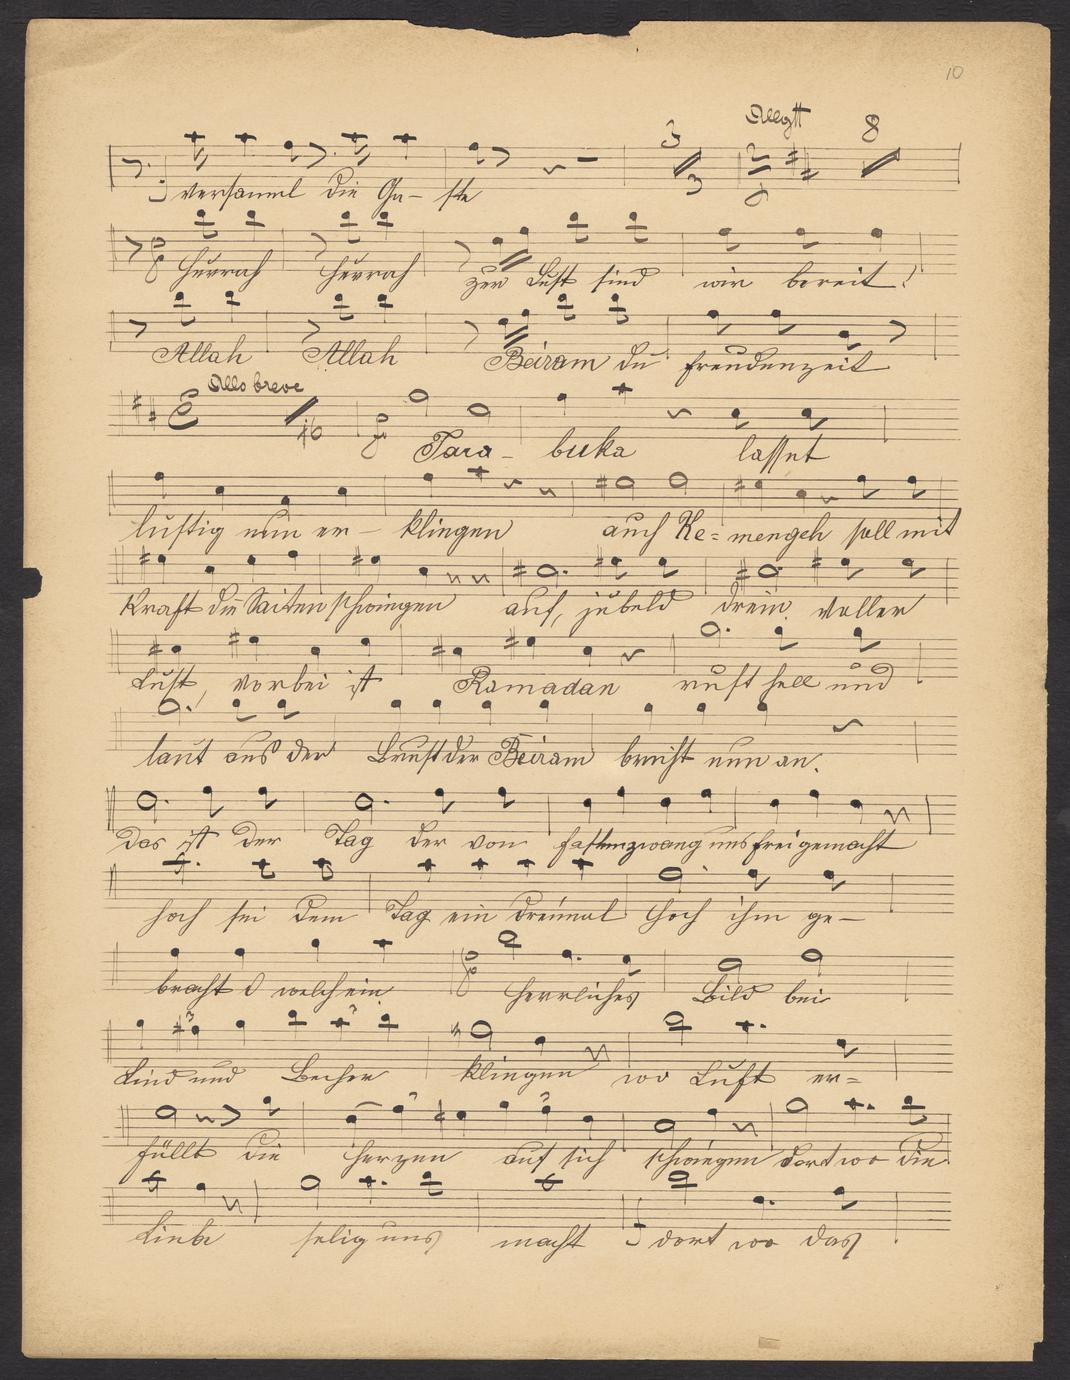 10
3 Allgtt 8
3
versaml die Gä- ste
Hurrah Hurrah zur Lust sind wir bereit!
Allah Allah Beiram du freudenzeit
Allo breve
16
Tara- buka lasset
lustig nun er- klingen auch Ke= mengeh soll mit
Kraft die Saiten schwingen auf, jubeld drein voller
Lust, vorbei ist Ramadan ruft hell und
laut aus der Brust der Beiram bricht nun an.
das ist der Tag der von fastenzwang uns frei gemacht
hoch sei dem Tag ein dreimal Hoch ihm ge-
bracht O welch ein herrliches Bild bei
Lied und Becher klingen wo Lust er=
füllt die Herzen auf sich schwingen dort wo die
Liebe selig uns macht dort wo das